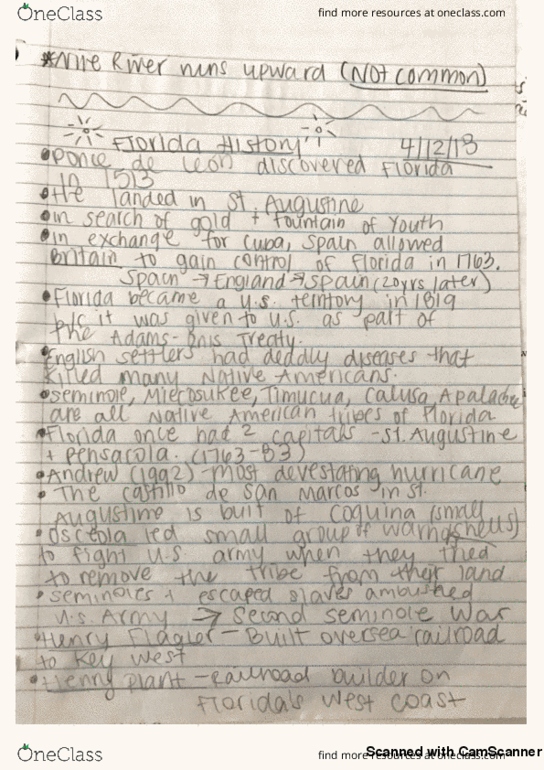 OneClass
find more resources at oneclass.com
*Nile River runs upward (Not common)
Florida History 4/12/18
•Ponce de león discovered Florida
in 1513
•He landed in St. Augustine
•in search of gold + fountain of Youth
•in exchange for Cuba, Spain allowed
Britain to gain control of Florida in 1763.
Spain → England → Spain (20yrs later)
•Florida became a U.S. territory in 1819
b/c it was given to U.S. as part of
the Adams-Onis Treaty.
•English settlers had deadly diseases that
killed many Native Americans.
•Seminole, Miccosukee, Timucua, Calusa, Apalachee
are all Native American tribes of Florida
•Florida once had 2 capitals - St. Augustine
+ Pensacola. (1763-83)
•Andrew (1992) - most devestating hurricane
• The Castillo de San Marcos in St.
Augustine is built of coquina (small
shells)
• Osceola led small group of
to fight U.S. army when they tried
to remove the tribe from their land
• Seminoles + escaped slaves ambushed
U.S. Army → Second Seminole War
•Henry Flagler - Built oversea railroad
to Key West
•Henry Plant - railroad builder on
Florida's West Coast
OneClass
find more resources at oneclass.com
Scanned with CamScanner